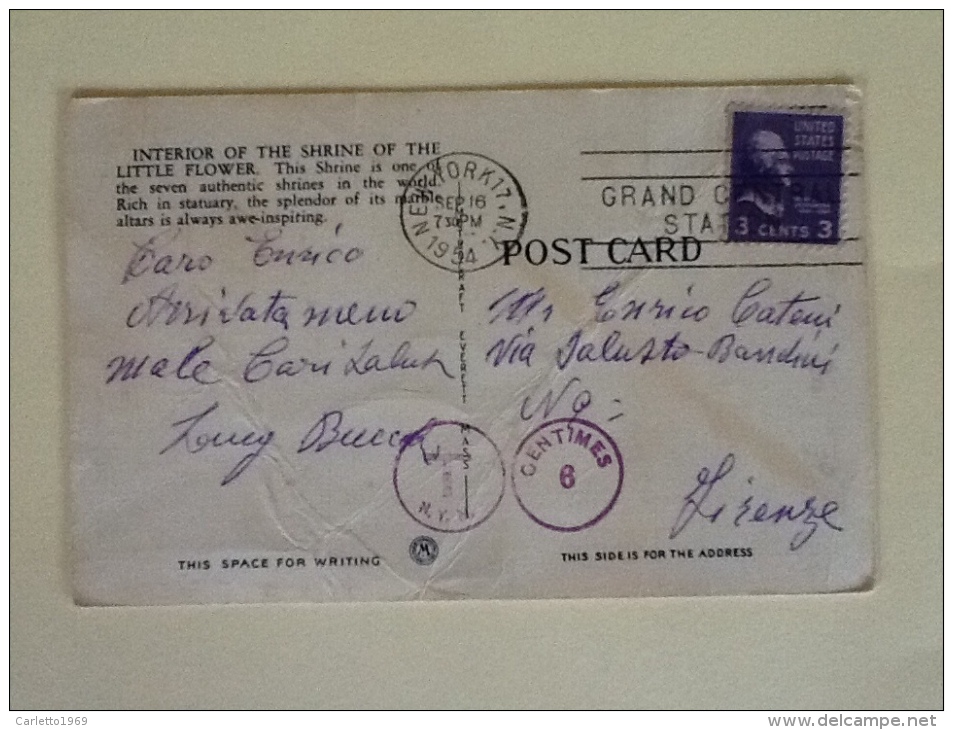 INTERIOR OF THE SHRINE OF THE
LITTLE FLOWER. This Shrine is one of
the seven authentic shrines in the world.
Rich in statuary, the splendor of its marble
altars is always awe-inspiring.
NEW YORK 17, N.Y.
SEP 16
730 PM
1954
GRAND CENTRAL
STA
UNITED
STATES
POSTAGE
3 CENTS 3
POST CARD
Caro Enrico
Arrivata meno
male Cari Saluti
Lucy
Mr Enrico Cateni
Via Salusto Bandini
No =
Firenze
EVERETT MASS
T
N.Y.
CENTIMES
6
THIS SPACE FOR WRITING
M
THIS SIDE IS FOR THE ADDRESS
Carletto1969
www.delcampe.net